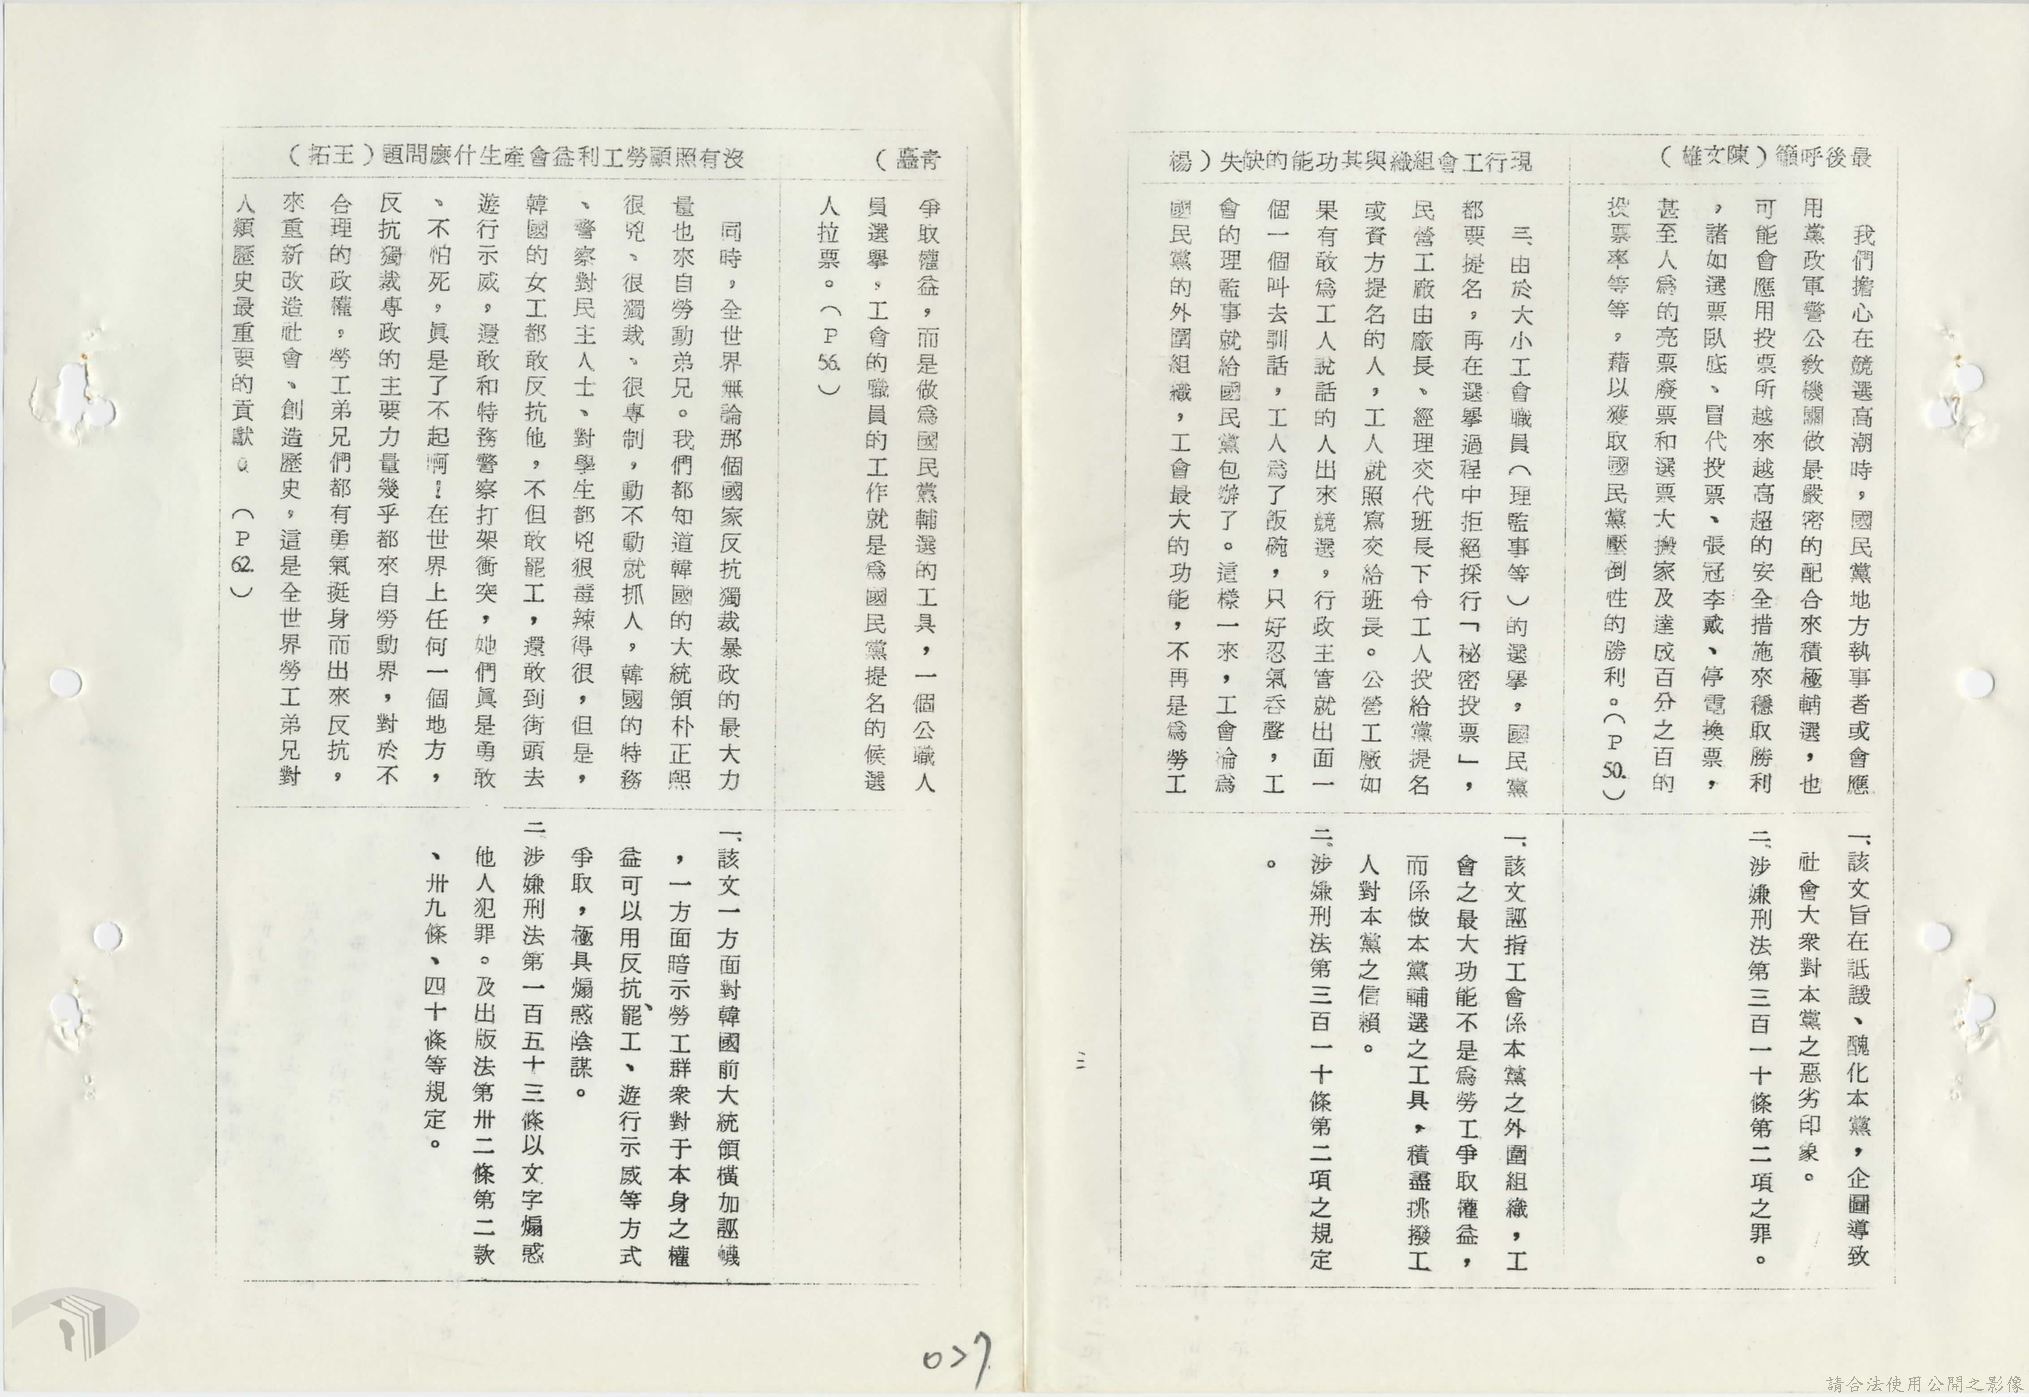 最後呼籲(陳文雄)
我們擔心在競選高潮時，國民黨地方執事者或會應
用黨政軍警公教機關做最嚴密的配合來積極輔選，也
可能會應用投票所越來越高超的安全措施來穩取勝利
，諸如選票臥底、冒代投票、張冠李戴、停電換票，
甚至人為的亮票廢票和選票大搬家及達成百分之百的
投票率等等，藉以獲取國民黨壓倒性的勝利。(P50.)
一、該文旨在詆譭、醜化本黨，企圖導致
社會大衆對本黨之惡劣印象。
二、涉嫌刑法第三百一十條第二項之罪。
現行工會組織與其功能的缺失(楊
三、由於大小工會職員(理監事等)的選舉，國民黨
都要提名，再在選舉過程中拒絕採行「秘密投票」，
民營工廠由廠長、經理交代班長下令工人投給黨提名
或資方提名的人，工人就照寫交給班長。公營工廠如
果有敢為工人說話的人出來競選，行政主管就出面一
個一個叫去訓話，工人為了飯碗，只好忍氣吞聲，工
會的理監事就給國民黨包辦了。這樣一來，工會淪為
國民黨的外圍組織，工會最大的功能，不再是為勞工
一、該文誣指工會係本黨之外圍組織，工
會之最大功能不是為勞工爭取權益，
而係做本黨輔選之工具，積盡挑撥工
人對本黨之信賴。
二、涉嫌刑法第三百一十條第二項之規定
。
三
青矗)
爭取權益，而是做為國民黨輔選的工具，一個公職人
員選舉，工會的職員的工作就是為國民黨提名的候選
人拉票。(P56.)
沒有照顧勞工利益會產生什麼問題(王拓)
同時，全世界無論那個國家反抗獨裁暴政的最大力
量也來自勞動弟兄。我們都知道韓國的大統領朴正熙
很兇、很獨裁、很專制，動不動就抓人，韓國的特務
、警察對民主人士、對學生都兇狠毒辣得很，但是，
韓國的女工都敢反抗他，不但敢罷工，還敢到街頭去
遊行示威，還敢和特務警察打架衝突，她們眞是勇敢
、不怕死，眞是了不起啊！在世界上任何一個地方，
反抗獨裁專政的主要力量幾乎都來自勞動界，對於不
合理的政權，勞工弟兄們都有勇氣挺身而出來反抗，
來重新改造社會、創造歷史，這是全世界勞工弟兄對
人類歷史最重要的貢獻。(P62.)
一、該文一方面對韓國前大統領橫加誣衊
，一方面暗示勞工群衆對于本身之權
益可以用反抗、罷工、遊行示威等方式
爭取，極具煽惑陰謀。
二、涉嫌刑法第一百五十三條以文字煽惑
他人犯罪。及出版法第卅二條第二款
、卅九條、四十條等規定。
027
請合法使用公開之影像